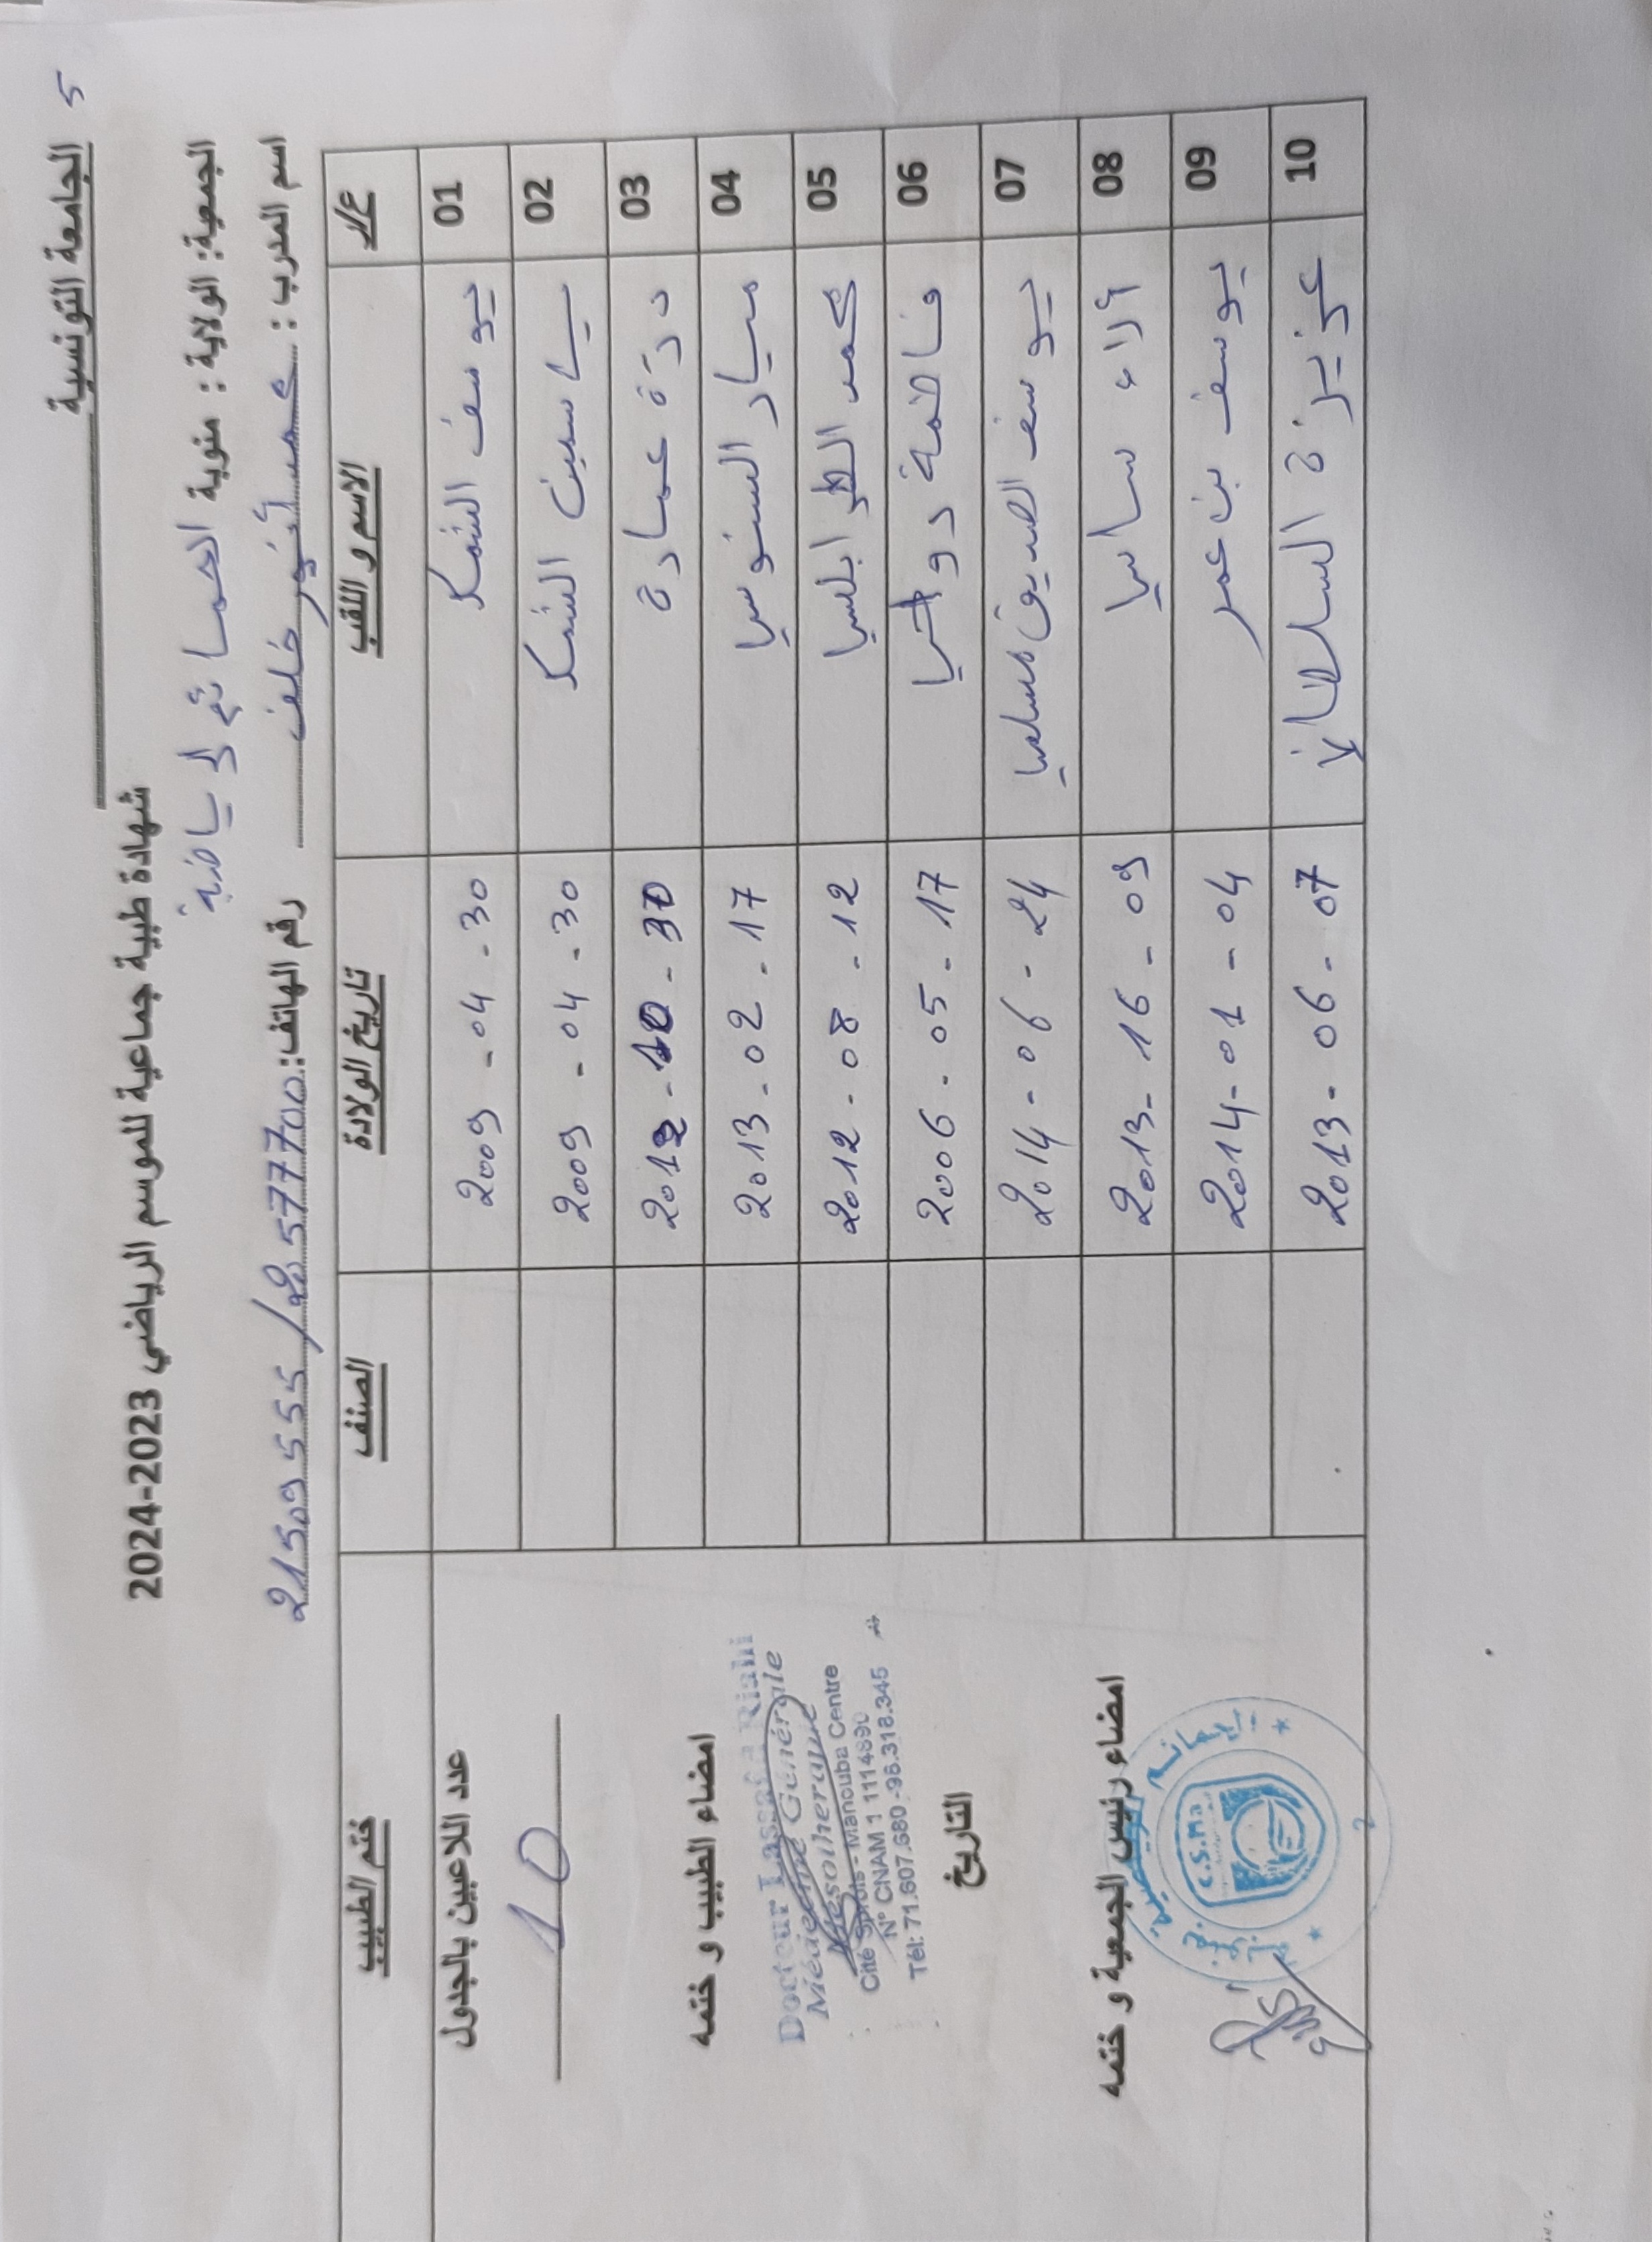 5
الجامعة التونسية
شهادة طبية جماعية للموسم الرياضي 2023-2024
الجمعية: الولاية: منوبة الحمائم الرياضية
اسم المدرب: محمد أنور خلف رقم الهاتف: 21509555 / 20577700
ع/ر الاسم و اللقب تاريخ الولادة الصنف ختم الطبيب
01 يوسف الشمك 2009 - 04 - 30
02 ياسمين الشمك 2009 - 04 - 30
03 درة عمارة 2012 - 10 - 30
04 ميار السنوسي 2013 - 02 - 17
05 محمد الطرابلسي 2012 - 08 - 12
06 فاطمة 2006 - 05 - 17
07 يوسف الصديق مسلمي 2014 - 06 - 24
08 ألاء ساسي 2013 - 16 - 09
09 يوسف بن عمر 2014 - 01 - 04
10 عزيزة السلطاني 2013 - 06 - 07
عدد اللاعبين بالجدول
10
امضاء الطبيب و ختمه
Docteur Lassaad Riahi
Médecine Générale
Mésothérapie
Cité Sports - Manouba Centre
N° CNAM 1 1114890
Tél: 71.607.680 - 96.318.345
التاريخ
امضاء رئيس الجمعية و ختمه
C.S.Ma